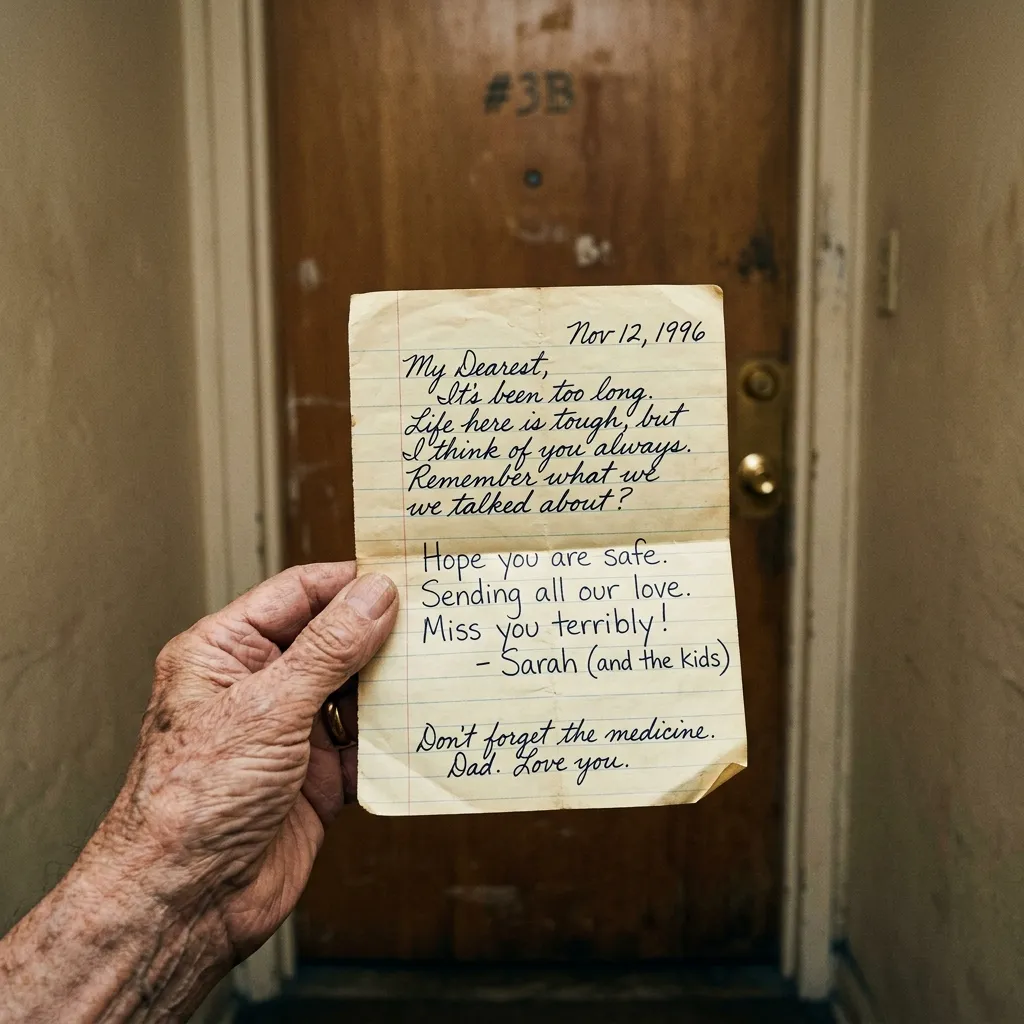 #3B
Nov 12, 1996
My Dearest,
It's been too long.
Life here is tough, but
I think of you always.
Remember what we
we talked about?
Hope you are safe.
Sending all our love.
Miss you terribly!
- Sarah (and the kids)
Don't forget the medicine.
Dad. Love you.